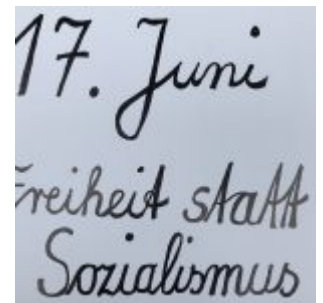 17. Juni
Freiheit statt
Sozialismus